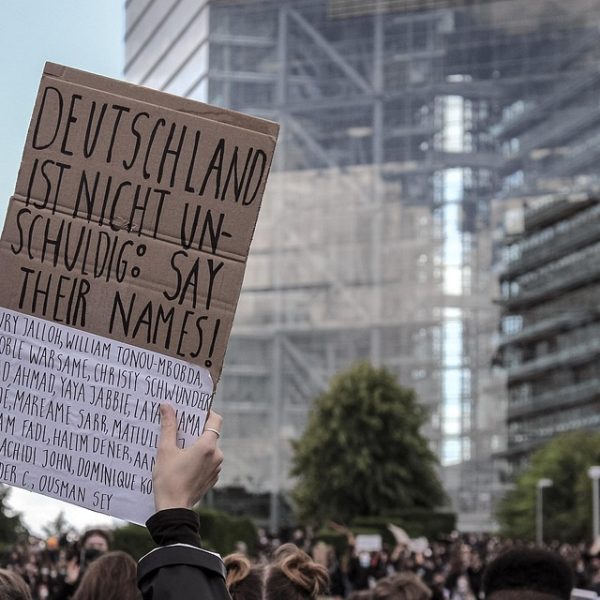 DEUTSCHLAND
IST NICHT UN-
SCHULDIG: SAY
THEIR NAMES!
URY JALLOH, WILLIAM TONOU-MBOBDA,
OBLE WARSAME, CHRISTY SCHWUNDECK
D AHMAD, YAYA JABBIE, LAYA
MAREAME SARR, MATIUL
AM FADL, HALIM DENER,
ACHIDI JOHN, DOMINIQUE
DER C., OUSMAN SEY